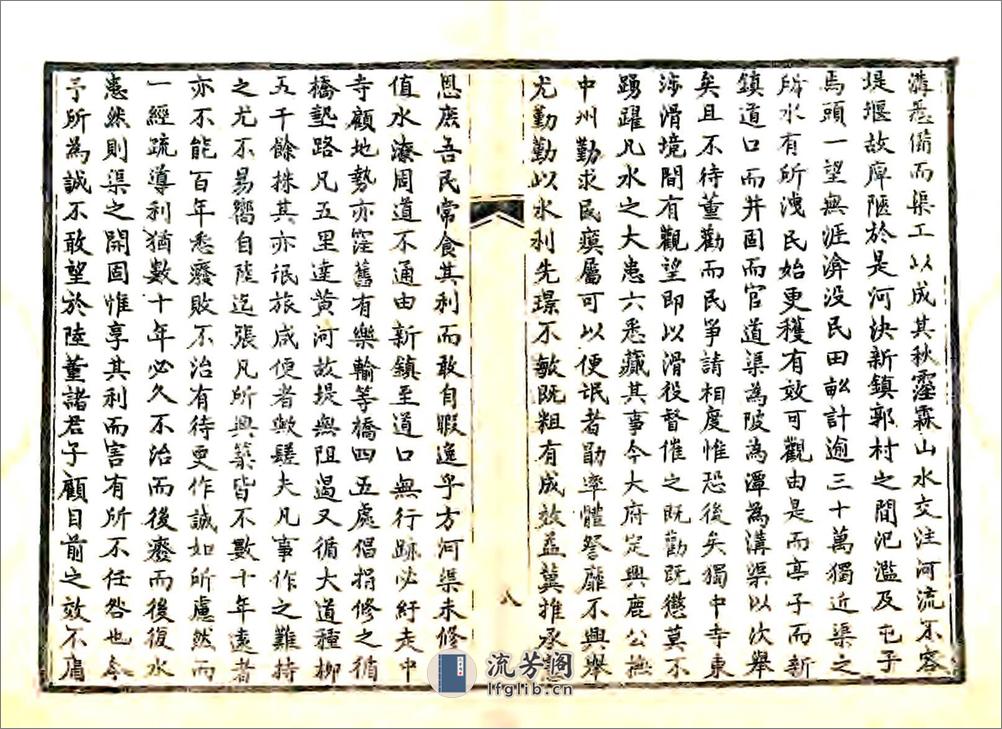 溝悉備而渠工以成其秋霪霖山水交注河流不容
堤堰故庳陋於是河決新鎮郭村之間汜濫及屯子
馬頭一望無涯渰没民田畝計逾三十萬獨近渠之
所水有所洩民始更穫有效可觀由是而亭子而新
鎮道口而井固而官道渠為陂為潭為溝渠以次舉
矣且不待董勸而民爭請相度惟恐後矣獨中寺東
滑境間有觀望即以滑役督催之既勸既懲莫不
踴躍凡水之大患六悉藏其事今大府定興鹿公撫
中州勤求民瘼屬可以便氓者勛率體督靡不興舉
尤勤勤以水利先璟不敏既粗有成效益冀推承
八
恩庶吾民常食其利而敢自暇逸乎方河渠未修
值水潦周道不通由新鎮至道口無行跡必紆走中
寺顧地勢亦窪舊有樂輸等橋四五處倡捐修之循
橋墊路凡五里達黄河故堤無阻遏又循大道種柳
五千餘株其亦氓旅咸便者歟嗟夫凡事作之難持
之尤不易嚮自陸迄張凡所興築皆不數十年遠者
亦不能百年悉廢敗不治有待更作誠如所慮然而
一經疏導利猶數十年必久不治而後廢而後復水
患然則渠之開固惟享其利而害有所不任咎也今
予所為誠不敢望於陸董諸君子顧目前之效不
流芳阁
lfglib.cn